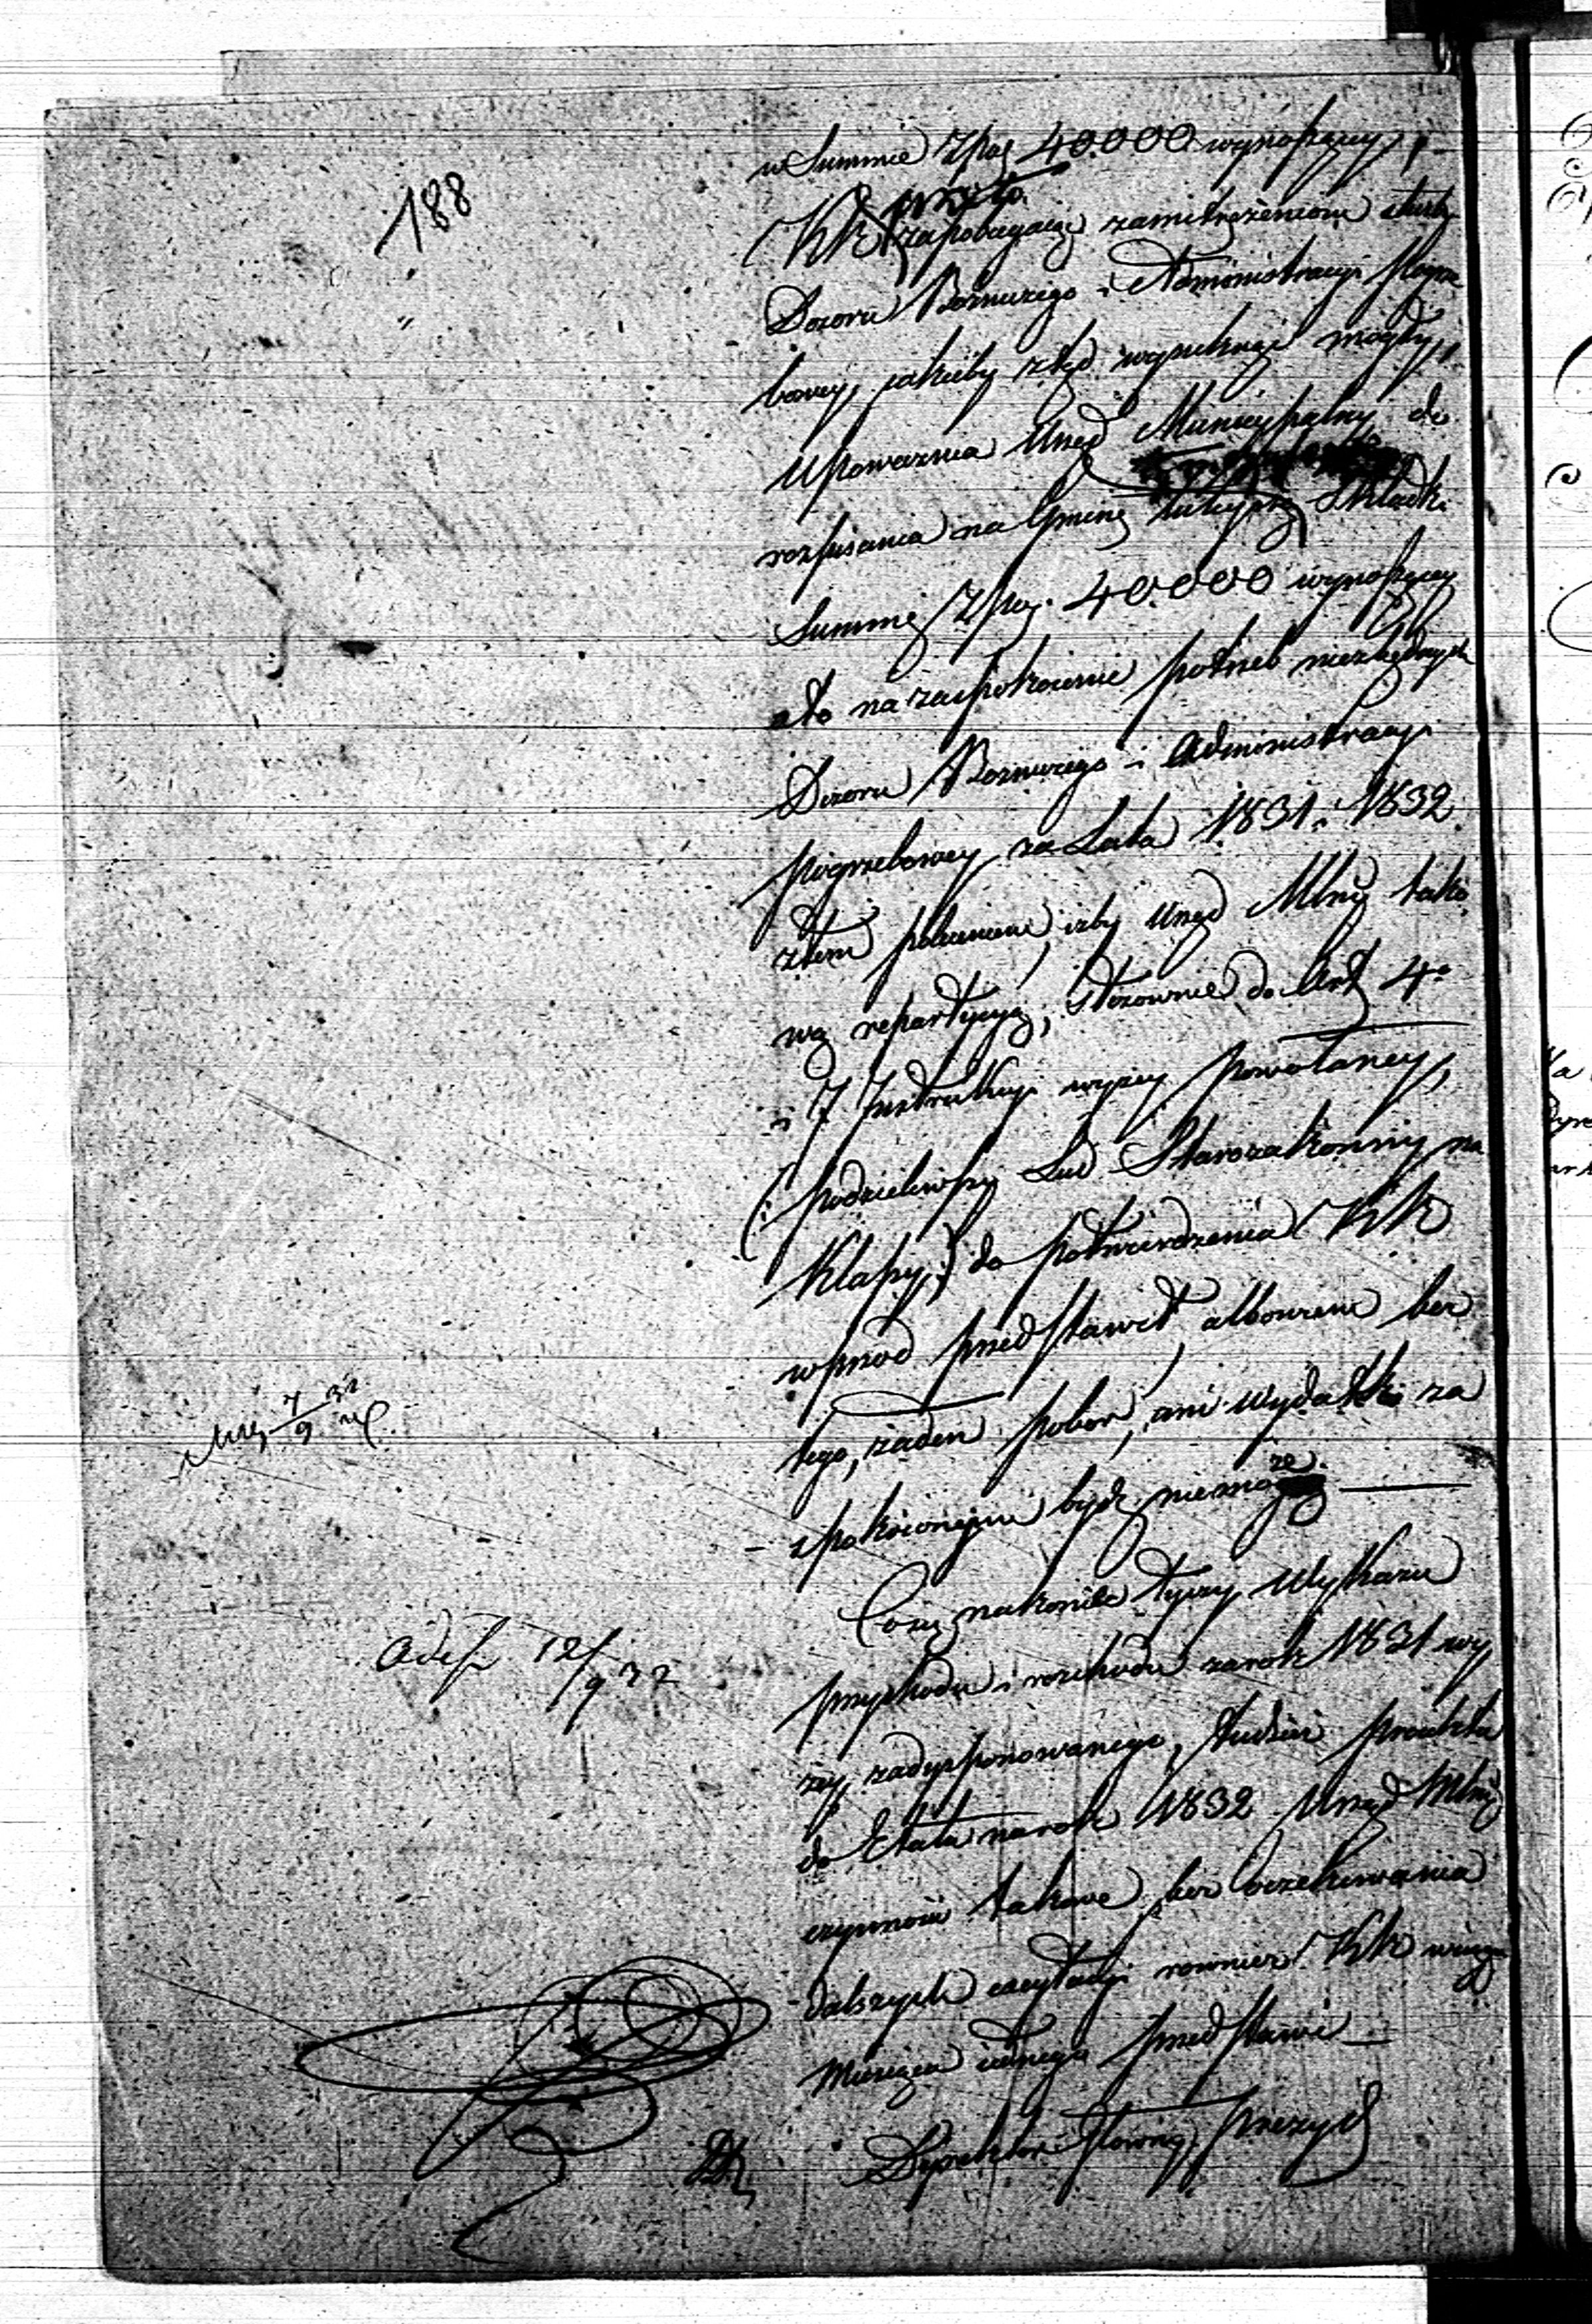 188
w Summie Zpol 40.000 wynoszącey,
przeto
KR zapobiegaiąc zamitrężeniom służby
Dozoru Boźniczego i Administracyi Pogrze
bowey, iakieby ztąd wyniknąć mogły,
Upoważnia Urząd Municypalny do
rozpisania na Gminę tuteyszą Składki
Summę Zpol. 40.000 wynoszącey
a to na zaspokoienie potrzeb niezbędnych
Dozoru Boźniczego i Administracyi
pogrzebowey za Lata 1831 i 1832.
z tem poleceniem, iżby Urząd Mlny tako
wą repartycyą, stosownie do Art 4o
i 7 Instrukcyi wyżey powołaney,
(: podzieliwszy Lud Starozakonny na
Klassy :) do potwierdzenia KR
wprzód przedstawił, albowiem bez
tego, żaden pobór, ani wydatki za
spokoionemi bydź niemoże.
Co się nakoniec tyczy Wykazu
przychodu i rozchodu za rok 1831 wy
żey zadysponowanego, tudzież proiektu
do Etatu na rok 1832 Urząd Mlny
czynności takowe bez oczekiwania
dalszych excytacyi również KR w ciągu
Miesiąca iednego przedstawi
Dyrektor Główny Prezyd
7/9 32
Adest 12/9 32